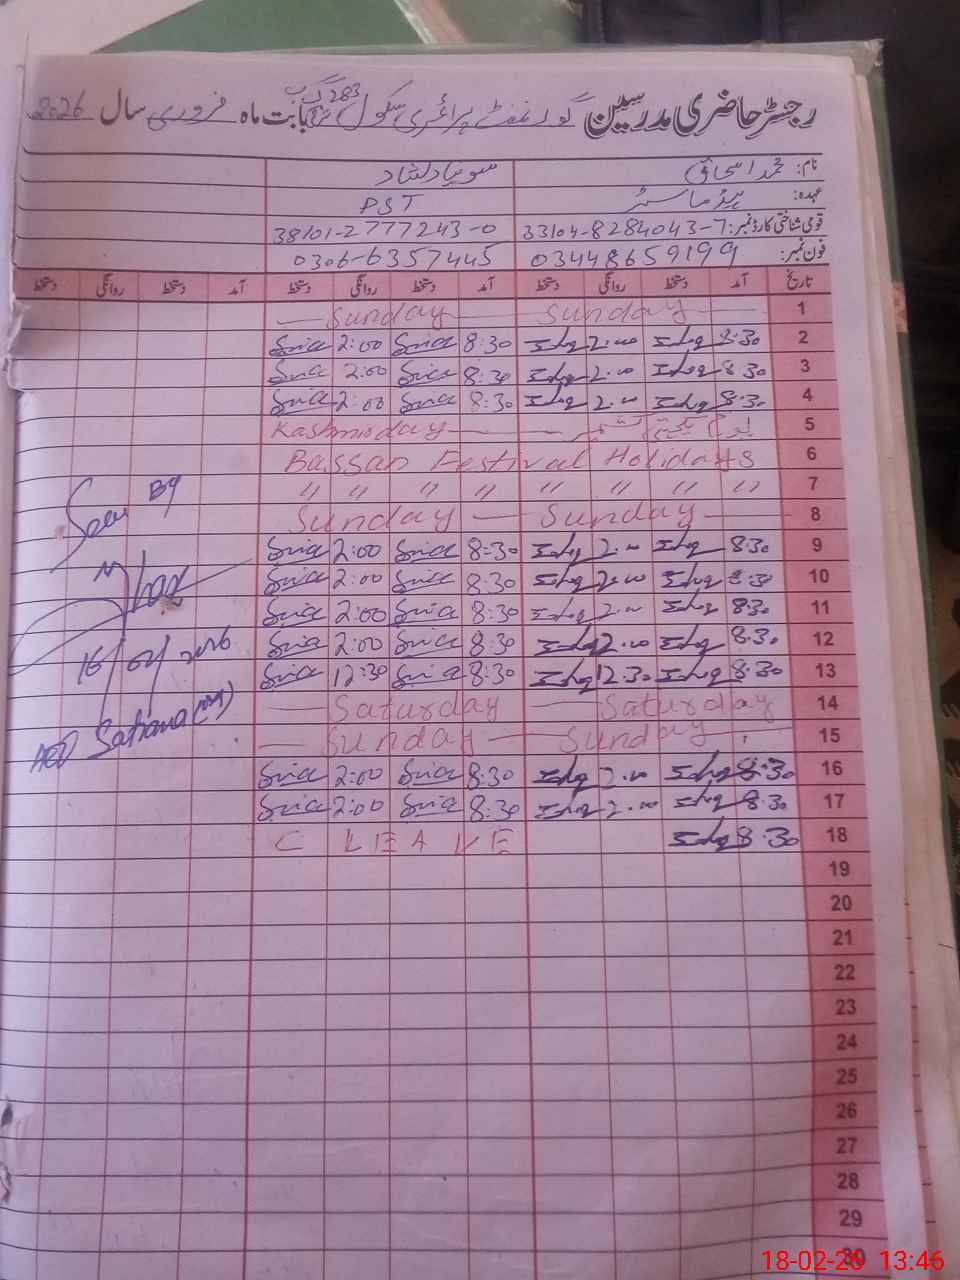 رجسٹر حاضری مدرسین گورنمنٹ پرائمری سکول 283 گ ب بابت ماہ فروری سال 2026
نام: محمد اسحاق سونیا دلشاد
عہدہ: ہیڈ ماسٹر PST
قومی شناختی کارڈ نمبر: 33104-8284043-7 38101-2777243-0
فون نمبر: 03448659199 0306-6357445
تاریخ آمد دستخط روانگی دستخط آمد دستخط روانگی دستخط آمد دستخط روانگی دستخط
1 Sunday Sunday
2 8:30 Ishq 2:00 Ishq 8:30 Snia 2:00 Snia
3 8:30 Ishq 2:00 Ishq 8:30 Snia 2:00 Snia
4 8:30 Ishq 2:00 Ishq 8:30 Snia 2:00 Snia
5 یوم یکجہتی کشمیر Kashmirday
6 Bassan Festival Holidays
7 " " " " " " " "
8 Sunday Sunday
9 8:30 Ishq 2:00 Ishq 8:30 Snia 2:00 Snia
10 8:30 Ishq 2:00 Ishq 8:30 Snia 2:00 Snia
11 8:30 Ishq 2:00 Ishq 8:30 Snia 2:00 Snia
12 8:30 Ishq 2:00 Ishq 8:30 Snia 2:00 Snia
13 8:30 Ishq 12:30 Ishq 8:30 Snia 12:30 Snia
14 Saturday Saturday
15 Sunday Sunday
16 8:30 Ishq 2:00 Ishq 8:30 Snia 2:00 Snia
17 8:30 Ishq 2:00 Ishq 8:30 Snia 2:00 Snia
18 8:30 Ishq C LEAVE
19
20
21
22
23
24
25
26
27
28
29
30
Seen By
16/02/2026
AEO Satiana
18-02-26 13:46